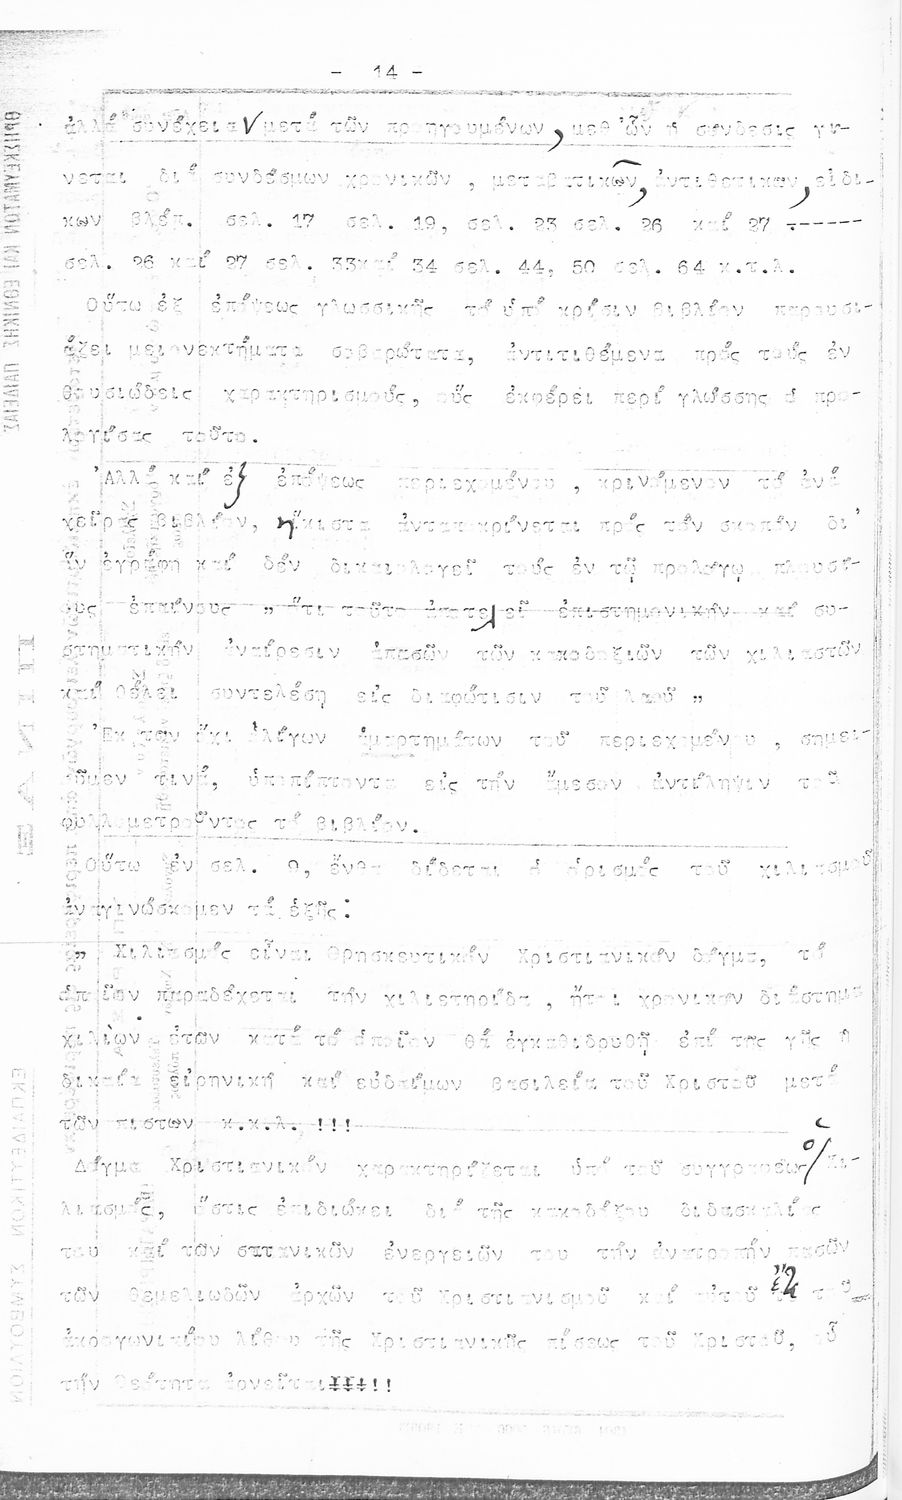 - 14 -
ἀλλά συνέχεια μετά τῶν προηγουμένων, μεθ' ὧν ἡ σύνδεσις γί-
νεται διά συνδέσμων χρονικῶν, μεταβατικῶν, ἀντιθετικων, εἰδι-
κων βλέπ. σελ. 17 σελ. 19, σελ. 23 σελ. 26 καί 27 .------
σελ. 26 καί 27 σελ. 33καί 34 σελ. 44, 50 σελ. 64 κ.τ.λ.
Οὕτω ἐξ ἐπόψεως γλωσσικῆς τό ὑπό κρίσιν βιβλίον παρουσι-
άζει μειονεκτήματα σοβαρώτατα, ἀντιτιθέμενα πρός τούς ἐν
θουσιώδεις χαρακτηρισμούς, οὕς ἐκφέρει περί γλώσσης ὁ προ-
λογίσας τοῦτο.
'Αλλά καί ἐξ ἐπόψεως περιεχομένου, κρινόμενον τό ἀνά
χεῖρας βιβλίον, ἥκιστα ἀνταποκρίνεται πρός τόν σκοπόν δι'
ὅν ἐγράφη καί δέν δικαιολογεῖ τούς ἐν τῷ προλόγῳ πλουσί-
ους ἐπαίνους „ ὅτι τοῦτο ἀποτελεῖ ἐπιστημονικήν καί συ-
στηματικήν ἀναίρεσιν ἁπασῶν τῶν κακοδοξιῶν τῶν χιλιαστῶν
καί θέλει συντελέση εἰς διαφώτισιν τοῦ λαοῦ „
'Εκ των ὄχι ὀλίγων ἁμαρτημάτων τοῦ περιεχομένου, σημει-
οῦμεν τινά, ὑποπίπτοντα εἰς τήν ἄμεσον ἀντίληψιν τοῦ
φυλλομετροῦντος τό βιβλίον.
Οὕτω ἐν σελ. 9, ἔνθα δίδεται ὁ ὁρισμός τοῦ χιλιασμοῦ
ἀναγινώσκομεν τά ἑξῆς:
„ Χιλιασμός εἶναι θρησκευτικόν Χριστιανικόν δόγμα, τό
ὁποῖον παραδέχεται τήν χιλιετηρίδα, ἤτοι χρονικον διάστημα
χιλίων ἐτων κατά τό ὁποῖον θά ἐγκαθιδρυθῇ ἐπί της γῆς ἡ
δικαία εἰρηνική καί εὐδαίμων βασιλεία τοῦ Χριστοῦ μετά
τῶν πιστων κ.κ.λ. !!!
Δόγμα Χριστιανικόν χαρακτηρίζεται ὑπό τοῦ συγγραφέως ὁ Χι-
λιασμός, ὅστις ἐπιδιώκει διά τῆς κακοδόξου διδασκαλίας
του καί τῶν σατανικῶν ἐνεργειῶν του τήν ἀνατροπήν πασῶν
τῶν θεμελιωδῶν ἀρχῶν τοῦ Χριστιανισμοῦ καί αὐτοῦ ἔτι τοῦ
ἀκρογωνιαίου λίθου τῆς Χριστιανικῆς πίστεως τοῦ Χριστοῦ, οὗ
τήν θεότητα ἀρνεῖται!!!!!